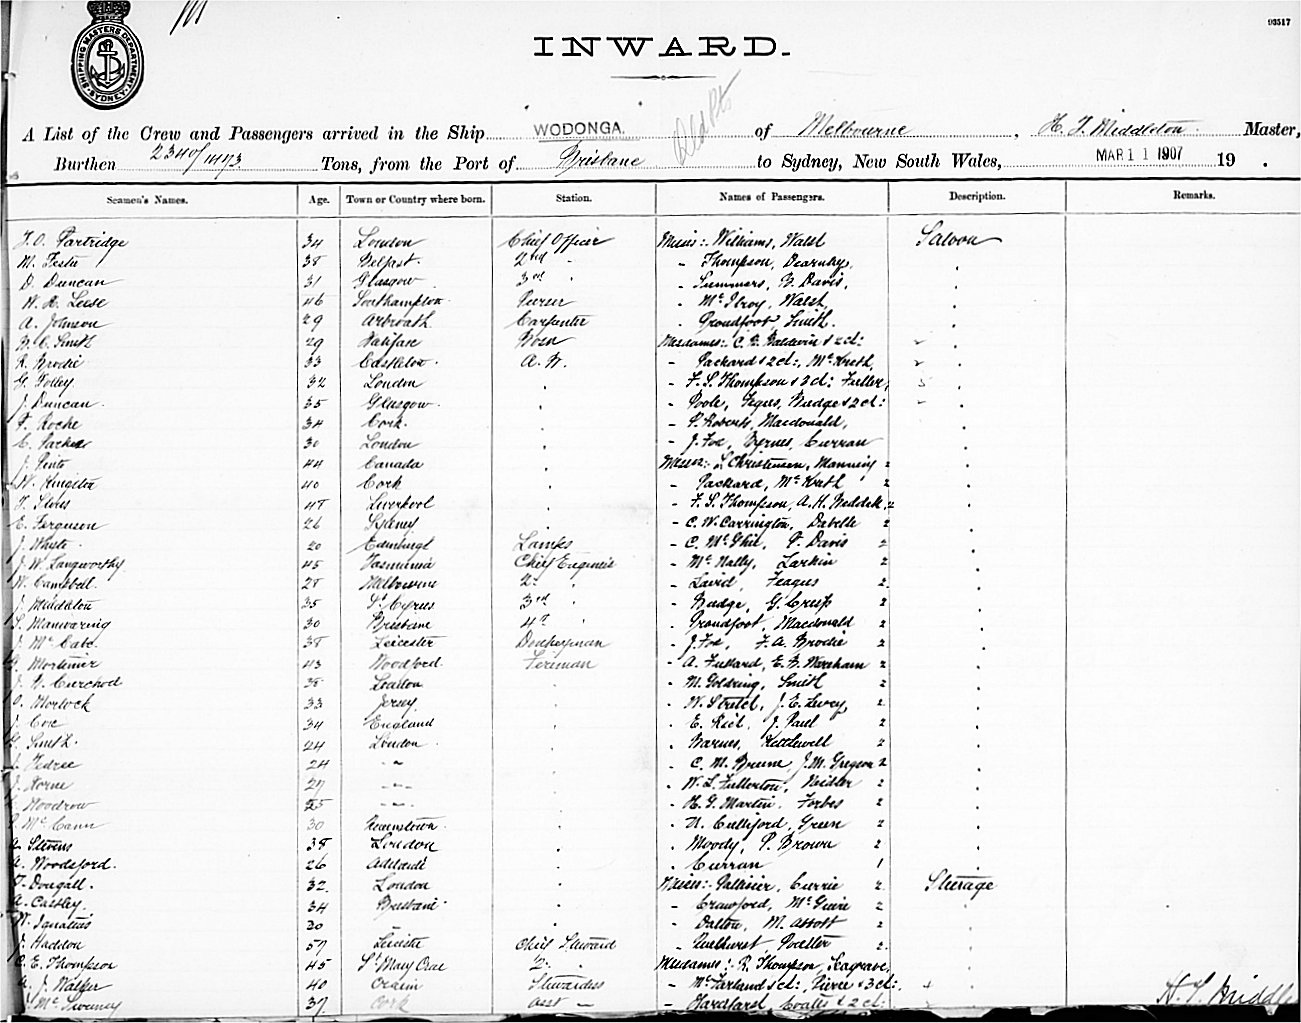 93517
SHIPPING MASTERS DEPARTMENT SYDNEY
INWARD.
A List of the Crew and Passengers arrived in the Ship WODONGA. of Melbourne, H. T. Middleton Master,
Burthen 2340/1473 Tons, from the Port of Brisbane to Sydney, New South Wales, MAR 11 1907 19 .
Seamen's Names. Age. Town or Country where born. Station. Names of Passengers. Description. Remarks.
Partridge 34 London Chief Officer Misses: Williams, Walsh Saloon
38 Belfast 2nd " - Thompson, Dearnley,
D. Duncan 31 Glasgow 3rd " - Summers, Davis,
46 Southampton Purser - McIlroy, Walsh,
A. Johnson 29 Arbroath Carpenter - Groundfoot, Smith.
Smith 29 Halifax Bosn Mesdames: Baldwin & 2 ch:
R. Brodie 33 Castleton A.B. - Packard & 2 ch:,
G. Folley 32 London - F. S. Thompson & 3 ch: Fuller,
J. Duncan 35 Glasgow - Poole, Budge & 2 ch:
Roche 34 Cork - Roberts, Macdonald,
30 London - J. Fox, Byrnes, Curran
44 Canada Messrs: Christensen, Manning 2
40 Cork - Packard, 2
47 Liverpool - F. S. Thompson, A. H. 2
E. Ferguson 26 Sydney - C. W. Carrington, Dabelle 2
J. White 20 Edinburgh Lamps - C. McPhie, Davis 2
J. W. Langworthy 45 Tasmania Chief Engineer - McNally, Larkin 2
W. Campbell 28 Melbourne 2nd " - Laird, Feagus 2
J. Middleton 35 St Cyrus 3rd " - Budge, G. Cresp 2
S. Manwaring 30 Brisbane 4th " - Groundfoot, Macdonald 2
J. McCabe 38 Leicester Donkeyman - J. Fox, F. A. Brodie 2
Mortimer 43 Woodford Fireman - A. Fullard, E. B. Wareham 2
Curchod 38 London - M. Goldring, Smith 2
Morlock 33 Jersey - W. Stretch, J. E. Levey 2
Cox 34 England - E. J. Paul 2
Smith 24 London - Barnes, Kettlewell 2
24 " - C. M. Brune, J. M. Gregson 2
J. Horne 27 " - W. L. Fullerton, 2
Woodrow 25 " - H. G. Martin, Forbes 2
McCann 30 Queenstown - Culliford, Green 2
A. Stevens 38 London - Moody, P. Brown 2
A. Woodsford 26 Adelaide - Curran 1
Dougall 32 London Messrs: Currie 2 Steerage
A. Castley 34 Brisbane - Crawford, 2
W. Ignatius 30 - - Dalton, M. Abbott 2
J. Haddon 57 Leicester Chief Steward - 2
C. E. Thompson 45 St Mary Cray 2nd " Mesdames: R. Thompson, Seagrave,
J. Walker 40 Stewardess - McFarland 1 ch:, Pierce & 3 ch:
McSweeney 37 Cork Asst - - & 2 ch: